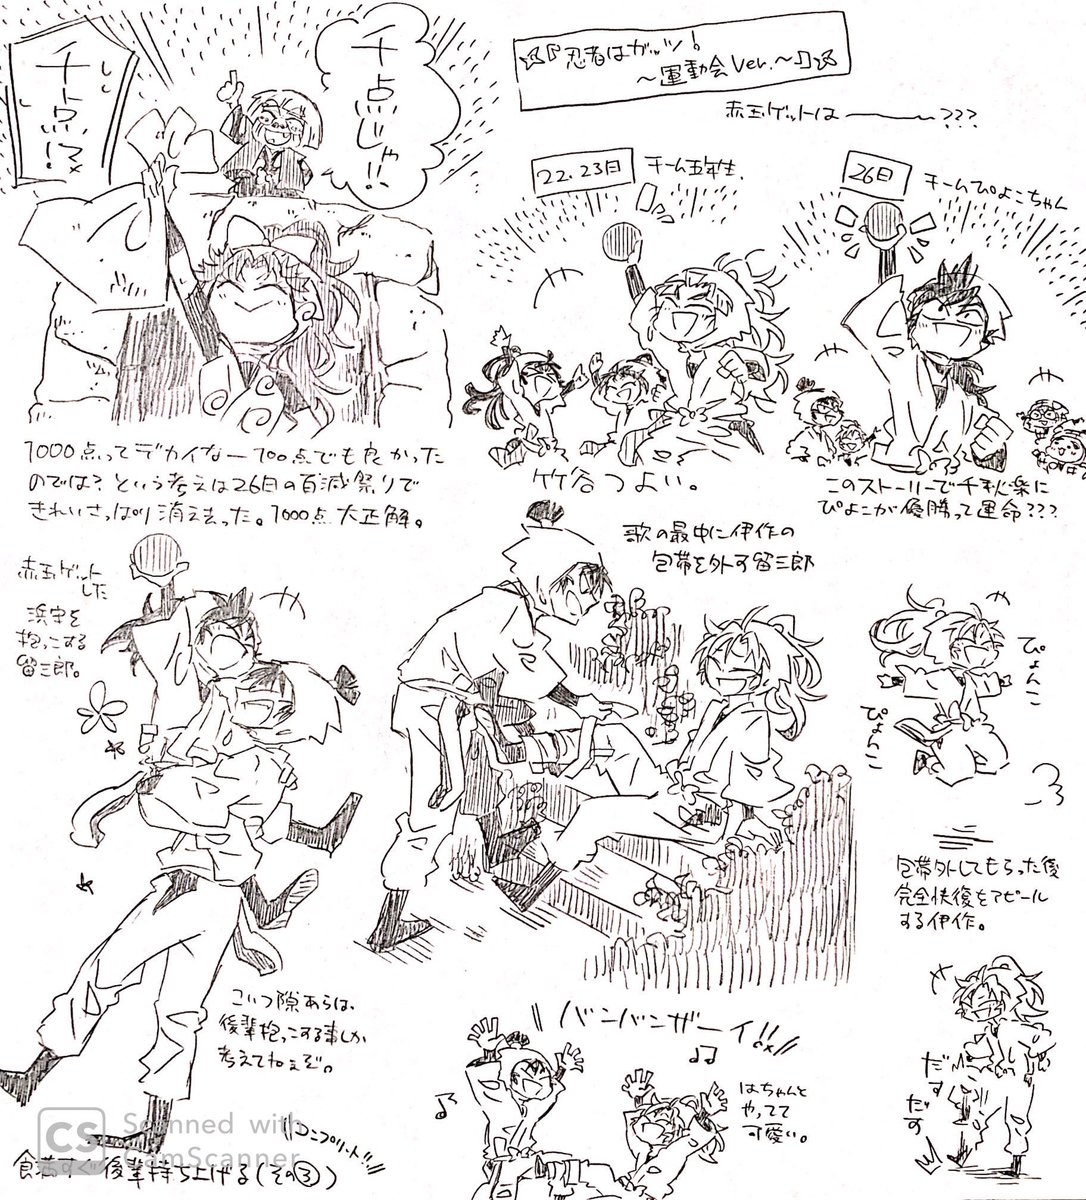 千点じゃ!!
千点!?
☆『忍者はガッツ!
〜運動会Ver.〜』☆
赤玉ゲットは――???
22.23日
チーム五年生
26日
チームぴよこちゃん
1000点ってデカイなー700点でも良かった
のでは?という考えは26日の百滅祭りで
きれいさっぱり消え去った。1000点大正解。
竹谷つよい。
このストーリーで千秋楽に
ぴよこが優勝って運命???
赤玉ゲット
した
浜守を
抱っこする
留三郎。
歌の最中に伊作の
包帯を外す留三郎
ぴょんこ
ぴょんこ
包帯外してもらった後
完全快復をアピール
する伊作。
こいつ隙あらば、
後輩抱っこする事しか
考えてねぇぞ。
バンバンザーイ!!
はちゃんと
やってて
可愛い。
だす
だす
コンプリート!!
食満すぐ後輩持ち上げる(その③)
CS Scanned with
CamScanner